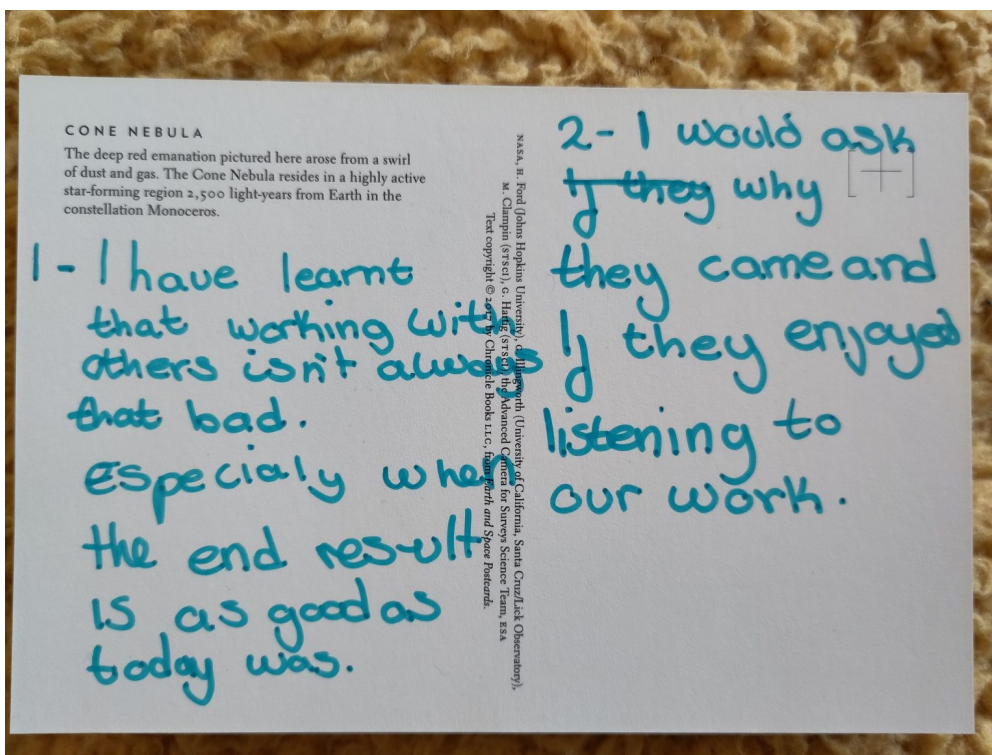 CONE NEBULA
The deep red emanation pictured here arose from a swirl
of dust and gas. The Cone Nebula resides in a highly active
star-forming region 2,500 light-years from Earth in the
constellation Monoceros.
1 - I have learnt
that working with
others isn't always
that bad.
Especialy when
the end result
is as good as
today was.
NASA, H. Ford (Johns Hopkins University), G. Illingworth (University of California, Santa Cruz/Lick Observatory),
M. Clampin (STScI), G. Hartig (STScI), the Advanced Camera for Surveys Science Team, ESA
Text copyright © 2017 by Chronicle Books LLC, from Earth and Space Postcards.
2 - I would ask
if they why
they came and
if they enjoyed
listening to
our work.